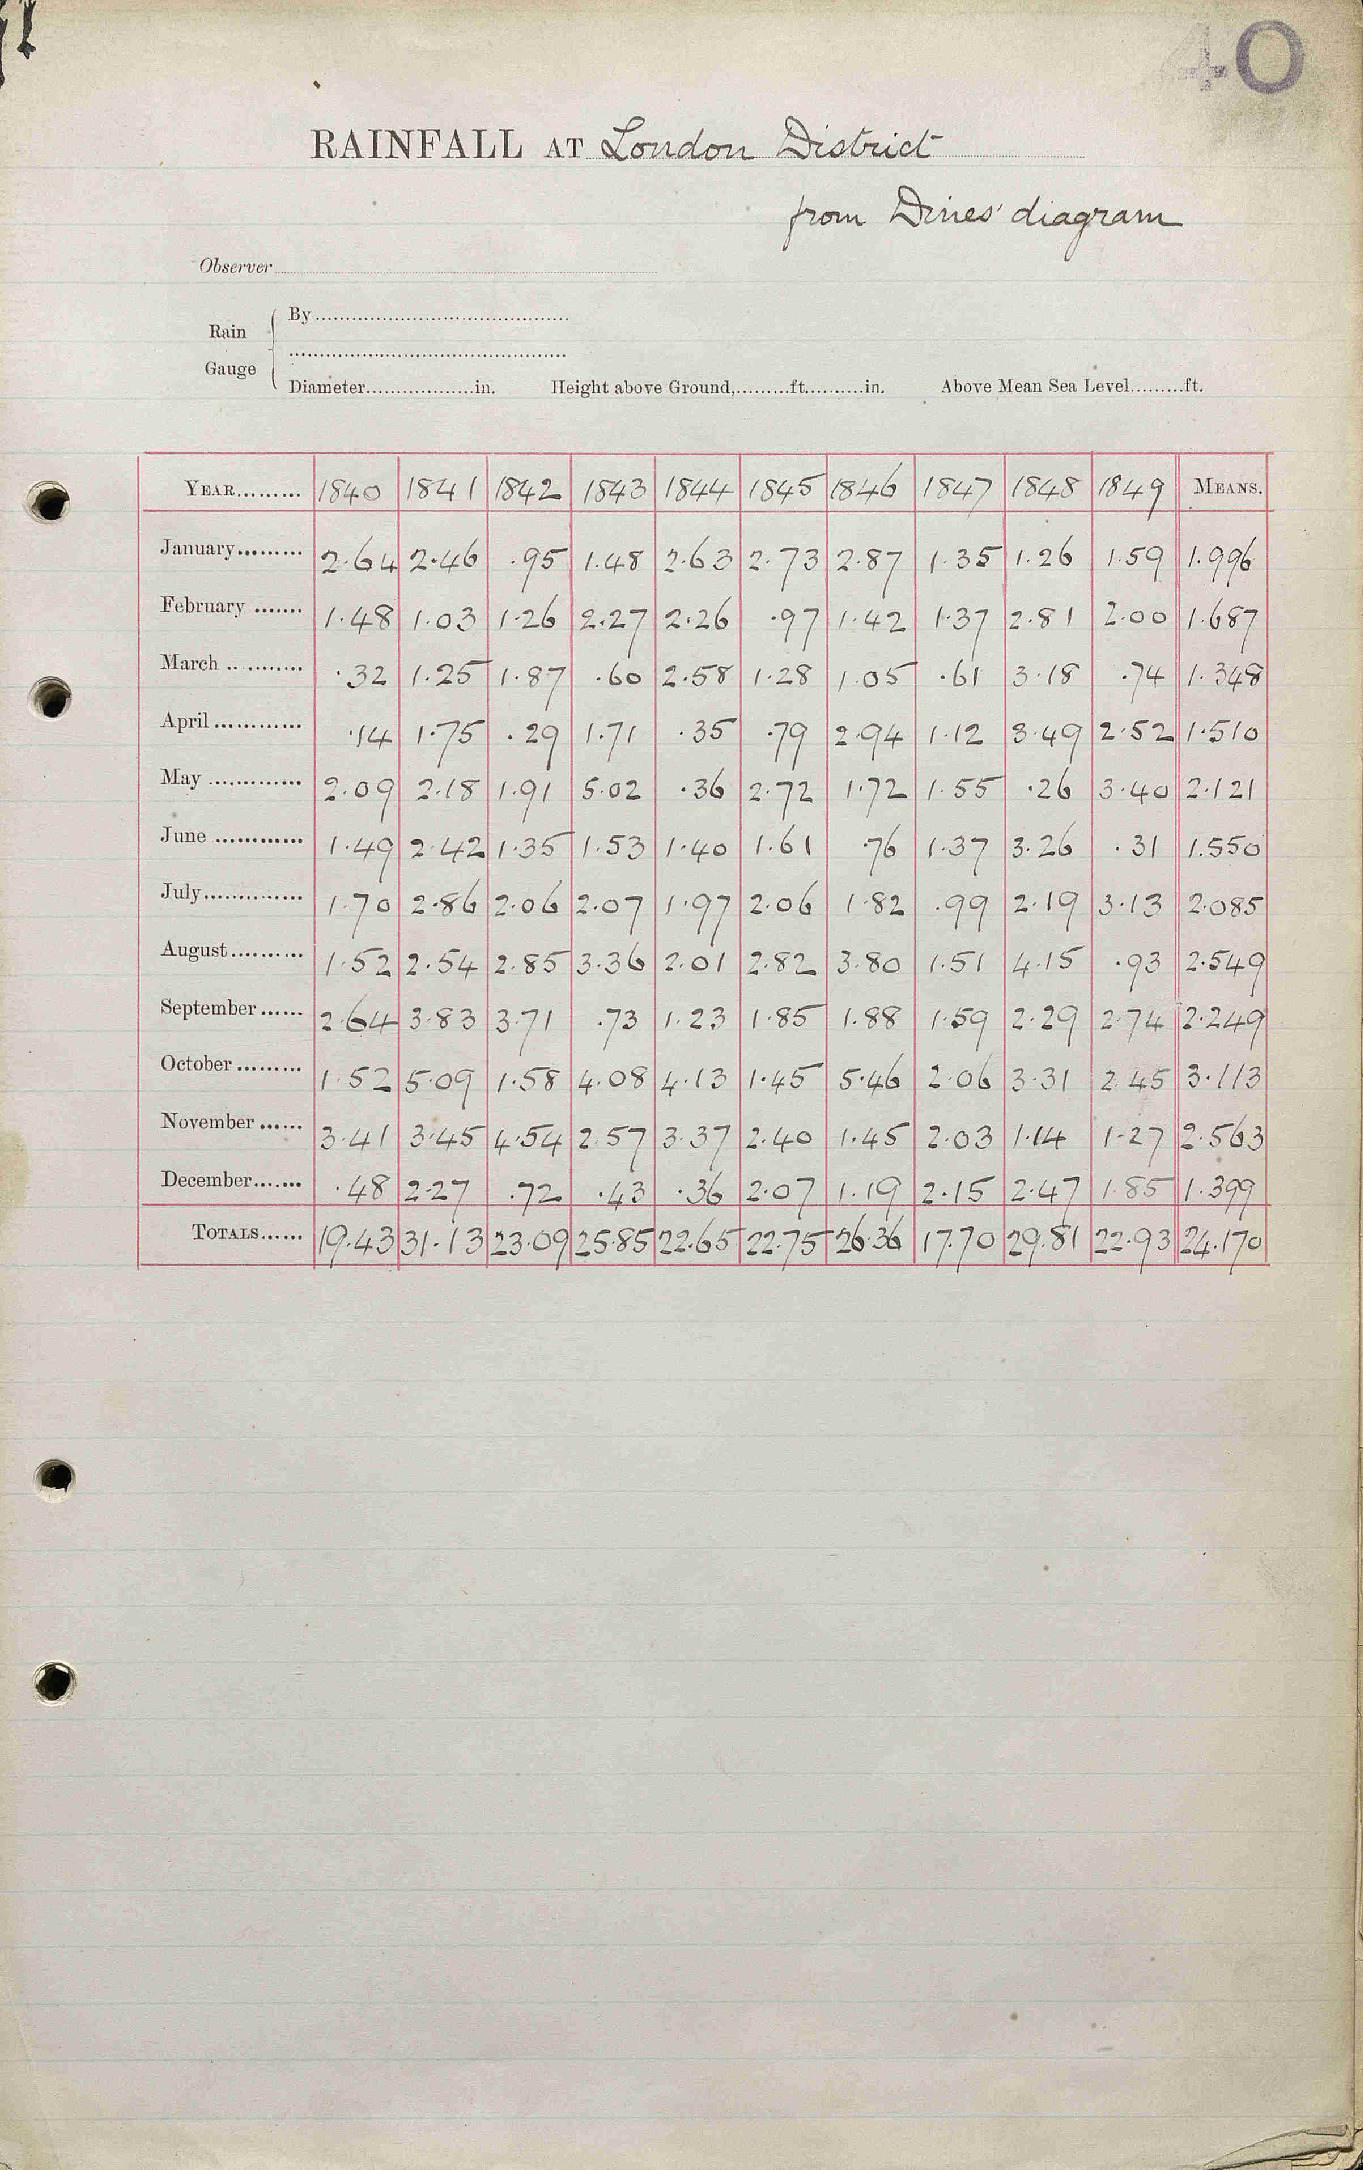 40
RAINFALL AT London District
from Dines' diagram
Observer
Rain Gauge { By
Diameter in. Height above Ground, ft. in. Above Mean Sea Level ft.
YEAR 1840 1841 1842 1843 1844 1845 1846 1847 1848 1849 MEANS.
January 2.64 2.46 .95 1.48 2.63 2.73 2.87 1.35 1.26 1.59 1.996
February 1.48 1.03 1.26 2.27 2.26 .97 1.42 1.37 2.81 2.00 1.687
March .32 1.25 1.87 .60 2.58 1.28 1.05 .61 3.18 .74 1.348
April .14 1.75 .29 1.71 .35 .79 2.94 1.12 3.49 2.52 1.510
May 2.09 2.18 1.91 5.02 .36 2.72 1.72 1.55 .26 3.40 2.121
June 1.49 2.42 1.35 1.53 1.40 1.61 .76 1.37 3.26 .31 1.550
July 1.70 2.86 2.06 2.07 1.97 2.06 1.82 .99 2.19 3.13 2.085
August 1.52 2.54 2.85 3.36 2.01 2.82 3.80 1.51 4.15 .93 2.549
September 2.64 3.83 3.71 .73 1.23 1.85 1.88 1.59 2.29 2.74 2.249
October 1.52 5.09 1.58 4.08 4.13 1.45 5.46 2.06 3.31 2.45 3.113
November 3.41 3.45 4.54 2.57 3.37 2.40 1.45 2.03 1.14 1.27 2.563
December .48 2.27 .72 .43 .36 2.07 1.19 2.15 2.47 1.85 1.399
TOTALS 19.43 31.13 23.09 25.85 22.65 22.75 26.36 17.70 29.81 22.93 24.170